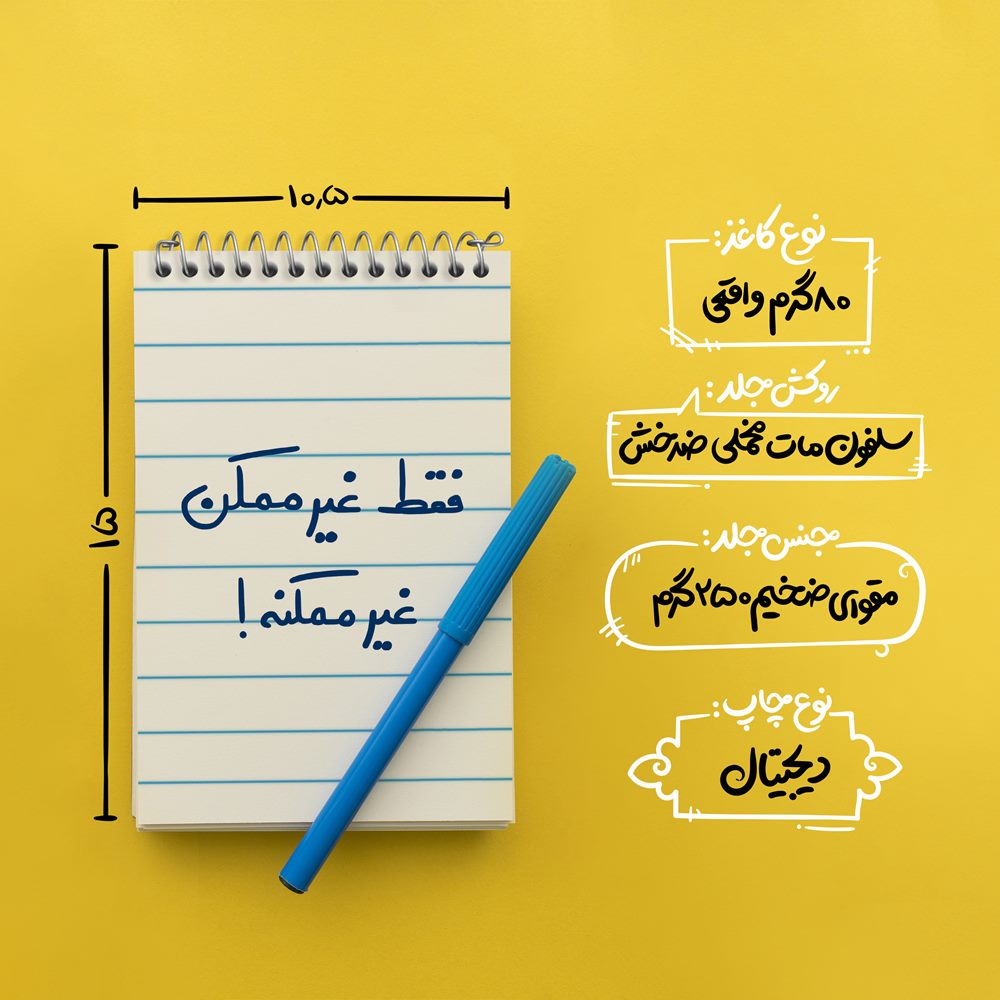 ۱۰٫۵
۱۵
فقط غیر ممکن
غیر ممکنه!
نوع کاغذ:
۸۰ گرم واقعی
روکش جلد:
سلفون مات مخملی ضدخش
جنس جلد:
مقوای ضخیم ۲۵۰ گرم
نوع چاپ:
دیجیتال